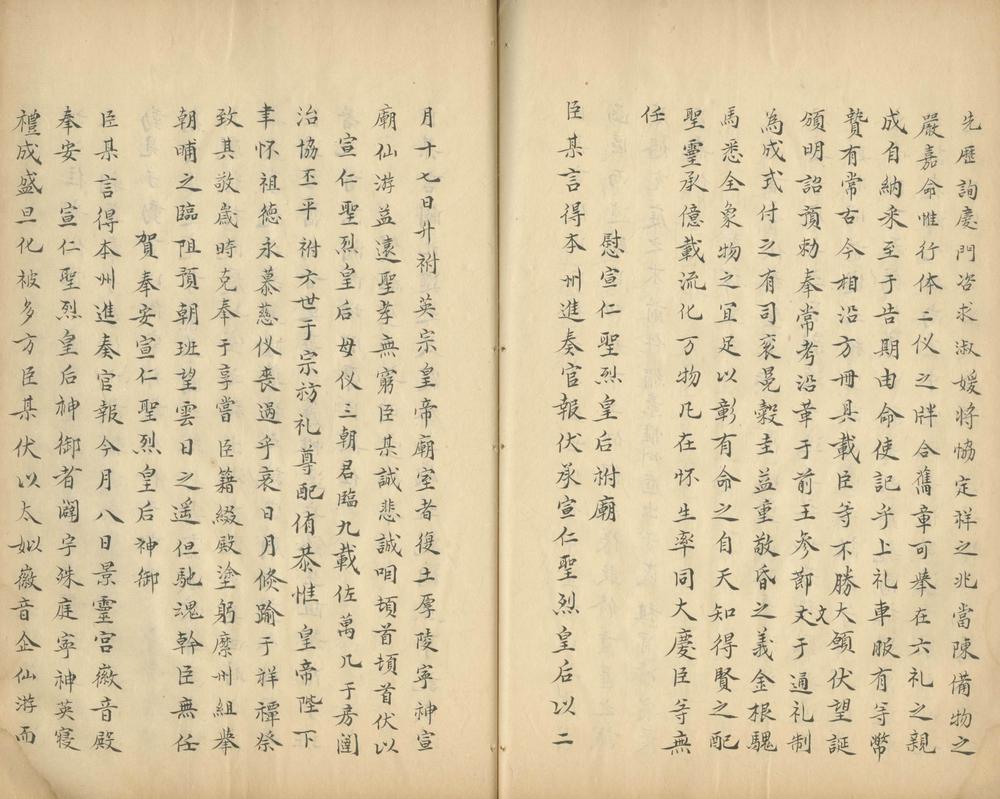 先歴詢慶門咨求淑媛将恊定祥之兆當陳備物之
嚴嘉命惟行体二仪之牉合舊章可舉在六礼之親
成自納采至于告期由命使記乎上礼車服有等幣
贄有常古今相沿方冊具載臣等不勝大願伏望誕
頒明詔預勑奉常考沿革于前王参莭文于通礼制
為成式付之有司衮冕糓圭益重敬昏之義金根騩
馬悉全象物之宜足以彰有命之自天知得賢之配
聖䨥承億載流化万物凡在怀生率同大慶臣等無
任
慰宣仁聖烈皇后祔廟
臣某言得本州進奏官報伏承宣仁聖烈皇后以二
月十七日升祔英宗皇帝廟室者復土厚陵寧神宣
廟仙游益遠聖孝無窮臣某誠悲誠咱頓首頓首伏以
宣仁聖烈皇后母仪三朝君臨九載佐萬几于房闥
治協丕平祔六世于宗祊礼尊配侑恭惟皇帝陛下
聿怀祖德永慕慈仪喪過乎哀日月倏踰于祥禫祭
致其敬歳時克奉于享嘗臣籍綴殿塗躬縻州組攀
朝晡之臨阻預朝班望雲日之遥但馳魂幹臣無任
賀奉安宣仁聖烈皇后神御
臣某言得本州進奏官報今月八日景靈宫徽音殿
奉安宣仁聖烈皇后神御者閟宇洙庭寧神英寝
禮成盛旦化被多方臣某伏以太姒徽音企仙游而